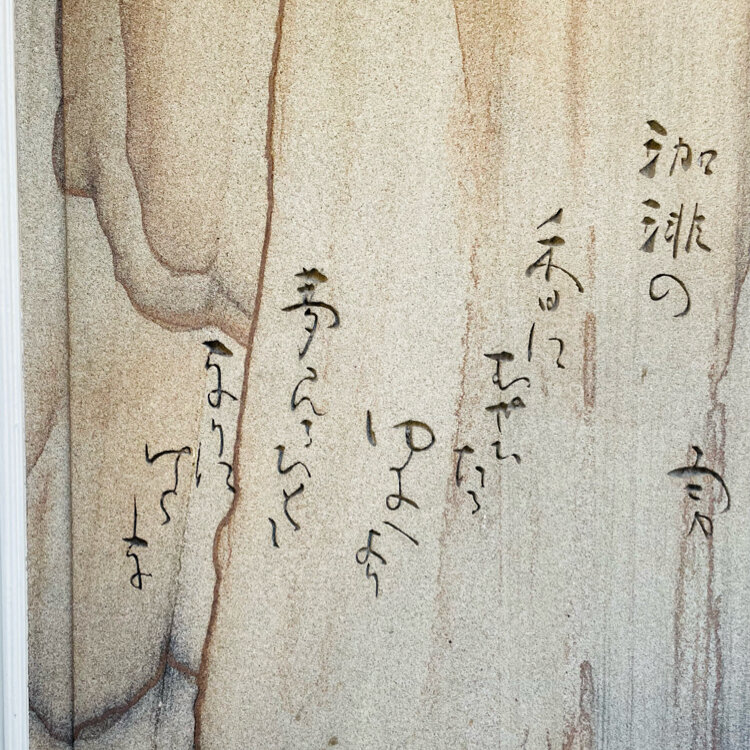 珈琲の
香に
むせび
たる
ゆふべ
より
夢見るひとと
なりに
けらし
な
勇